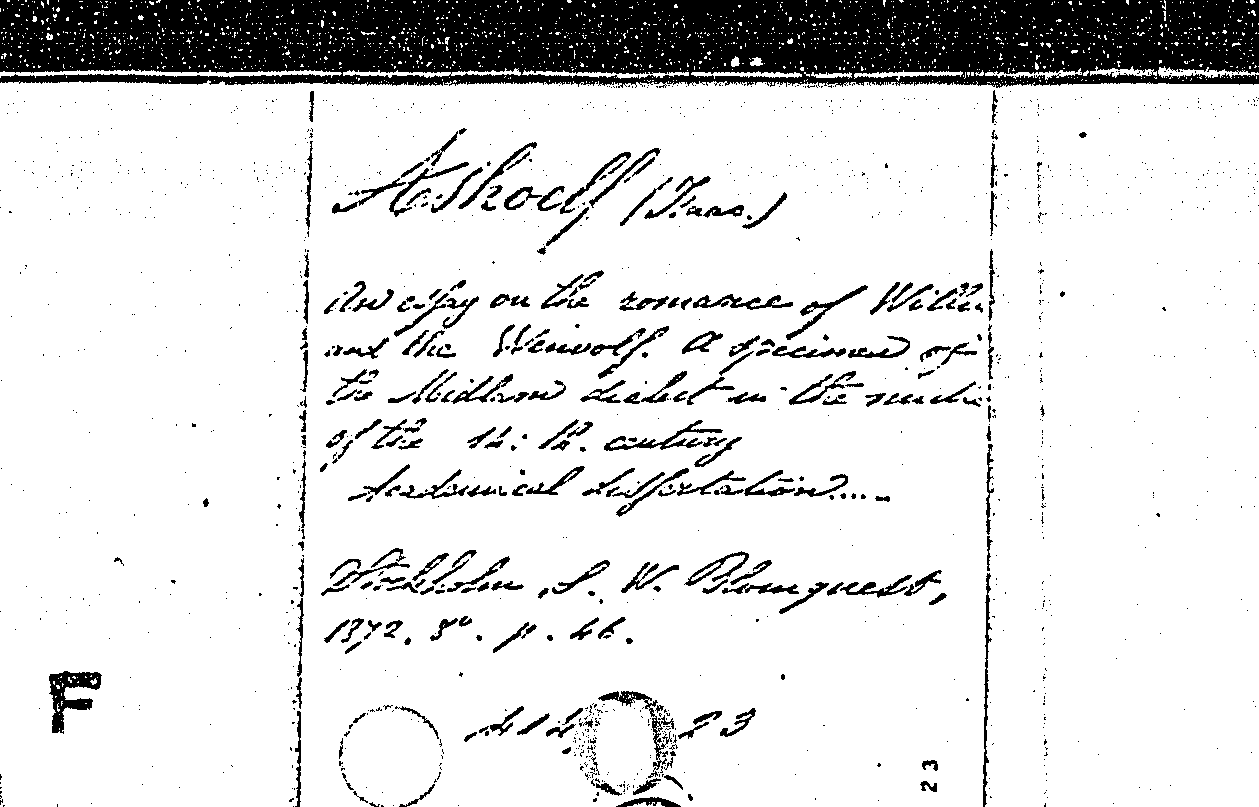 Askoelf (Isaac.)
An essay on the romance of Willi
and the Werwolf. A specimen of
the Midland dialect in the
of the 14: th. century
Academical dissertation.....
Stockholm, S. W. Blomquest,
1872. 8º. p. 46.
F
23
23